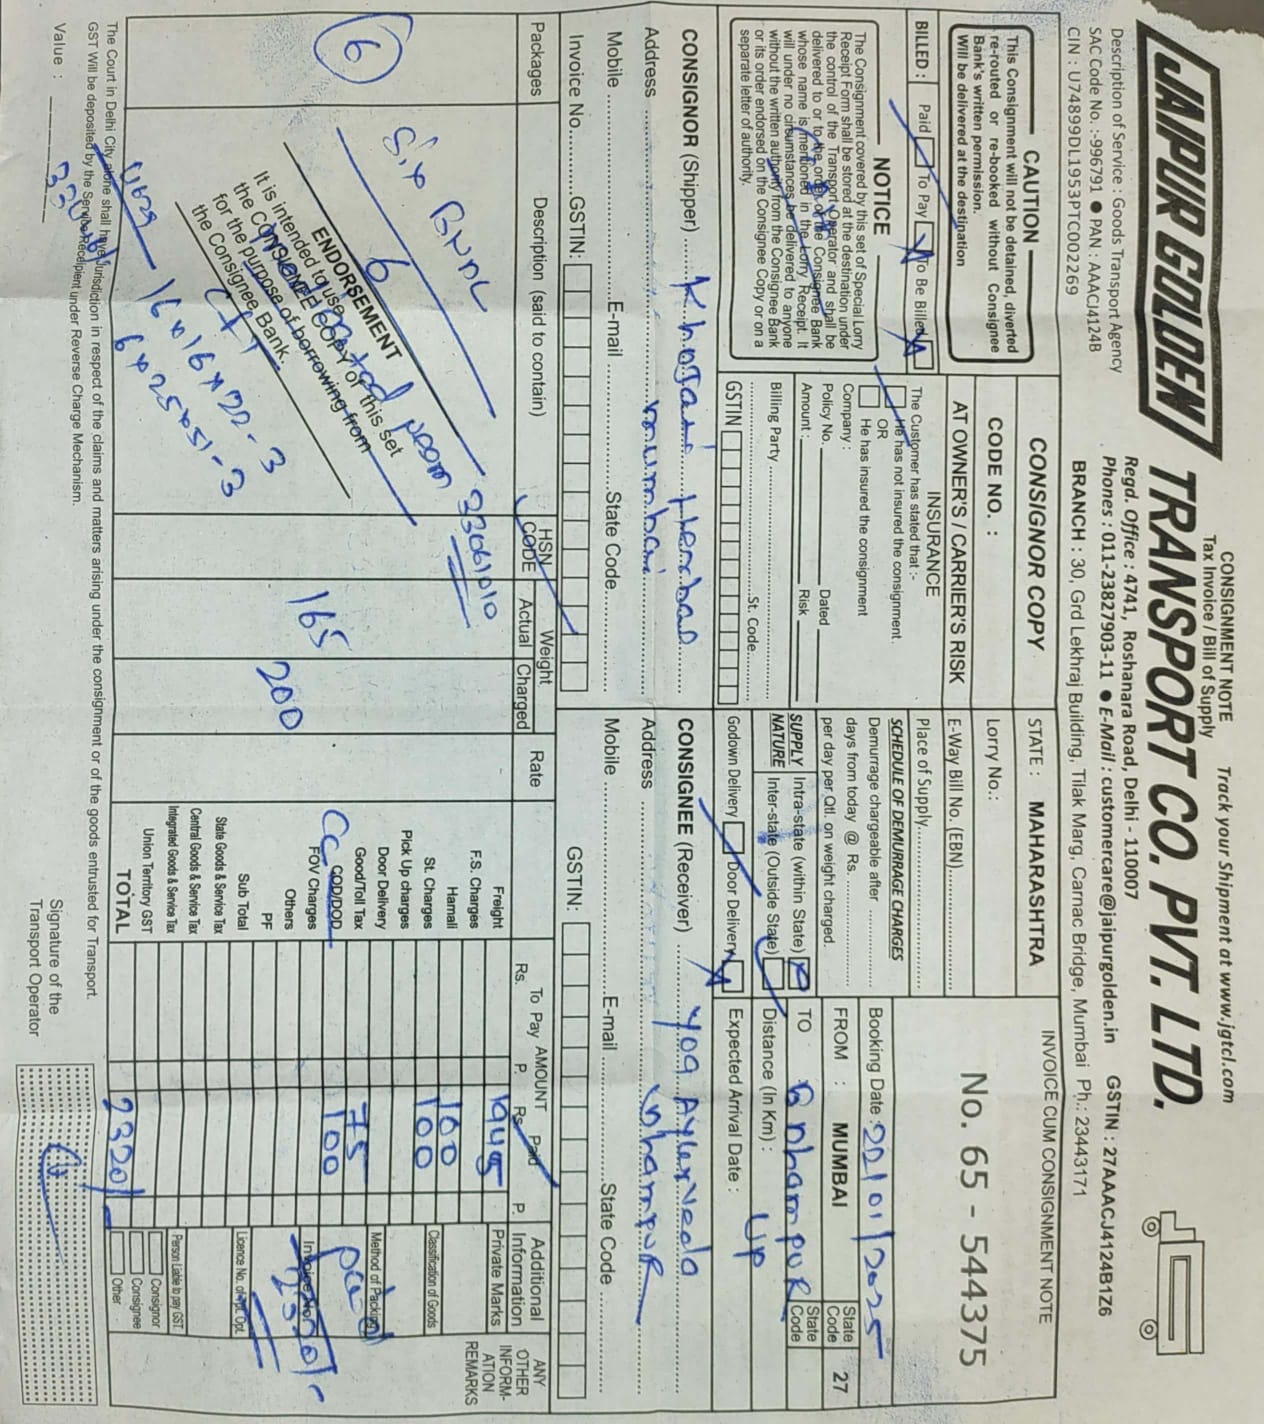 CONSIGNMENT NOTE
Tax Invoice / Bill of Supply
Track your Shipment at www.jgtcl.com
JAIPUR GOLDEN TRANSPORT CO. PVT. LTD.
Regd. Office : 4741, Roshanara Road, Delhi - 110007
Description of Service : Goods Transport Agency
Phones : 011-23827903-11 ● E-Mail : customercare@jaipurgolden.in GSTIN : 27AAACJ4124B1Z6
SAC Code No. :-996791 ● PAN : AAACJ4124B
CIN : U74899DL1953PTC002269
BRANCH : 30, Grd Lekhraj Building, Tilak Marg, Carnac Bridge, Mumbai Ph.: 23443171
CAUTION
This Consignment will not be detained, diverted
re-routed or re-booked without Consignee
Bank's written permission.
Will be delivered at the destination
BILLED : Paid To Pay To Be Billed
NOTICE
The Consignment covered by this set of Special Lorry
Receipt Form shall be stored at the destination under
the control of the Transport Operator and shall be
delivered to or to the order of the Consignee Bank
whose name is mentioned in the Lorry Receipt. It
will under no circumstances be delivered to anyone
without the written authority from the Consignee Bank
or its order endorsed on the Consignee Copy or on a
separate letter of authority.
CONSIGNOR COPY
CODE NO. :
AT OWNER'S / CARRIER'S RISK
INSURANCE
The Customer has stated that :-
He has not insured the consignment.
OR
He has insured the consignment
Company :
Policy No. Dated
Amount : Risk
Billing Party
St. Code
GSTIN
STATE : MAHARASHTRA
Lorry No.:
E-Way Bill No. (EBN)
Place of Supply
SCHEDULE OF DEMURRAGE CHARGES
Demurrage chargeable after
days from today @ Rs.
per day per Qtl. on weight charged.
SUPPLY NATURE
Intra-state (within State)
Inter-state (Outside State)
Godown Delivery Door Delivery
INVOICE CUM CONSIGNMENT NOTE
No. 65 - 544375
Booking Date : 20/01/2025
FROM : MUMBAI State Code 27
TO State Code
Distance (In Km) : UP
Expected Arrival Date :
CONSIGNOR (Shipper)
Address mumbai
Mobile E-mail State Code
Invoice No. GSTIN:
CONSIGNEE (Receiver) Yog Ayurveda
Address DhampuR
Mobile E-mail State Code
GSTIN:
Packages
Description (said to contain)
HSN CODE
Weight
Actual Charged
Rate
AMOUNT
To Pay Paid
Rs. P. Rs. P.
Additional Information
ANY OTHER INFORM-ATION REMARKS
6
Six BNDL
6
33061010
165
200
ENDORSEMENT
It is intended to use
the CONSIGNEE COPY of this set
for the purpose of borrowing from
the Consignee Bank.
16 x 16 x 22 - 3
6 x 25 x 51 - 3
Freight 1945
F.S. Charges
Hamali 100
St. Charges 100
Pick Up charges
Door Delivery
Good/Toll Tax 75
CC COD/DOD 100
FOV Charges
Others
PF
Sub Total
State Goods & Service Tax
Central Goods & Service Tax
Integrated Goods & Service Tax
Union Territory GST
TOTAL 2320/-
Private Marks
Classification of Goods
Method of Packing
paid
Invoice No.
2320/-
Licence No. of Tpt. Opt.
Person Liable to pay GST.
Consignor
Consignee
Other
The Court in Delhi City alone shall have Jurisdiction in respect of the claims and matters arising under the consignment or of the goods entrusted for Transport.
GST Will be deposited by the Service Recipient under Reverse Charge Mechanism.
Value :
Signature of the
Transport Operator